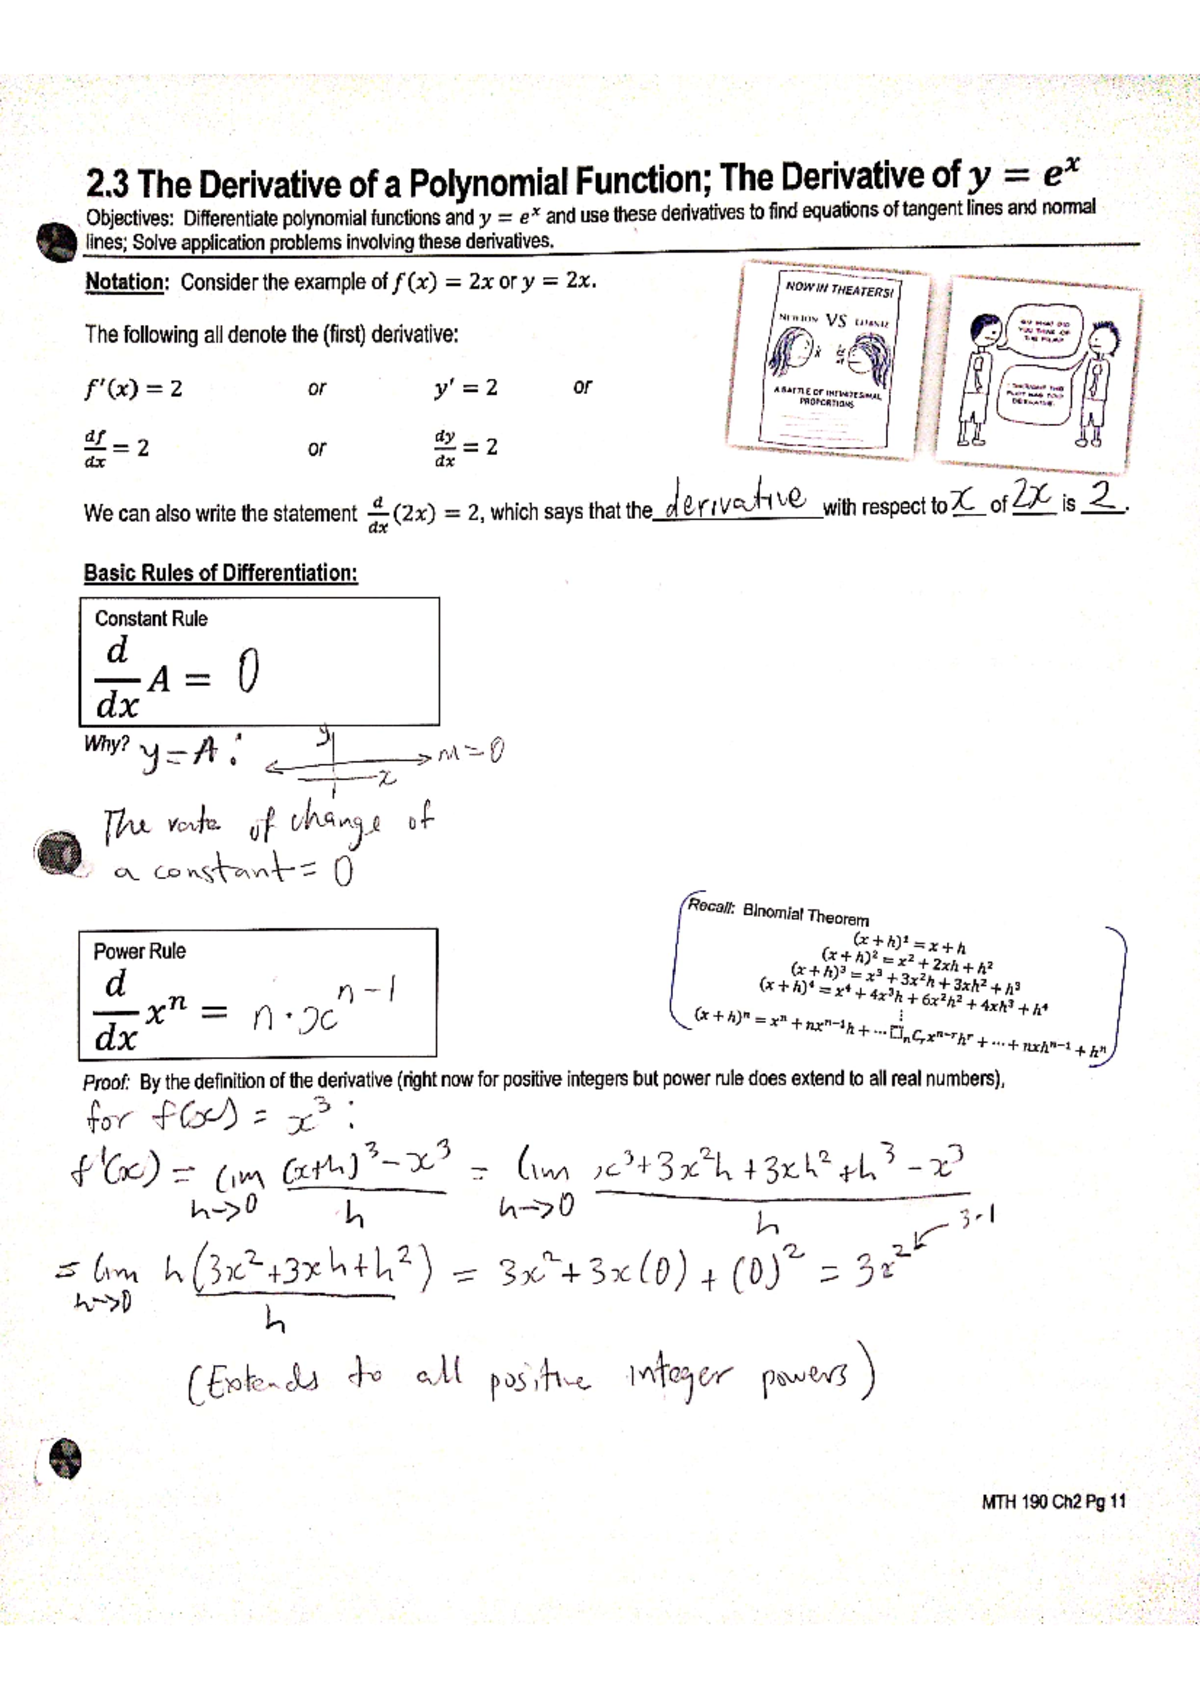 2.3 The Derivative of a Polynomial Function; The Derivative of y = e^x
Objectives: Differentiate polynomial functions and y = e^x and use these derivatives to find equations of tangent lines and normal
lines; Solve application problems involving these derivatives.
Notation: Consider the example of f(x) = 2x or y = 2x.
NOW IN THEATERS!
NEWTON VS LEIBNIZ
A BATTLE OF INFINITESIMAL
PROPORTIONS
SO WHAT DID
YOU THINK OF
THE FILM?
I THOUGHT THE
PLOT WAS TOO
DERIVATIVE.
The following all denote the (first) derivative:
f'(x) = 2 or y' = 2 or
df/dx = 2 or dy/dx = 2
We can also write the statement d/dx (2x) = 2, which says that the derivative with respect to x of 2x is 2.
Basic Rules of Differentiation:
Constant Rule
d/dx A = 0
Why? y = A : y x m = 0
The rate of change of
a constant = 0
Recall: Binomial Theorem
(x + h)^1 = x + h
(x + h)^2 = x^2 + 2xh + h^2
(x + h)^3 = x^3 + 3x^2h + 3xh^2 + h^3
(x + h)^4 = x^4 + 4x^3h + 6x^2h^2 + 4xh^3 + h^4
⋮
(x + h)^n = x^n + nx^{n-1}h + ⋯ □ nCr x^{n-r}h^r + ⋯ + nxh^{n-1} + h^n
Power Rule
d/dx x^n = n · x^{n-1}
Proof: By the definition of the derivative (right now for positive integers but power rule does extend to all real numbers),
for f(x) = x^3 :
f'(x) = lim h→0 (x+h)^3 - x^3 / h = lim h→0 x^3 + 3x^2h + 3xh^2 + h^3 - x^3 / h
= lim h→0 h(3x^2 + 3xh + h^2) / h = 3x^2 + 3x(0) + (0)^2 = 3x^2 ← 3-1
(Extends to all positive integer powers)
MTH 190 Ch2 Pg 11